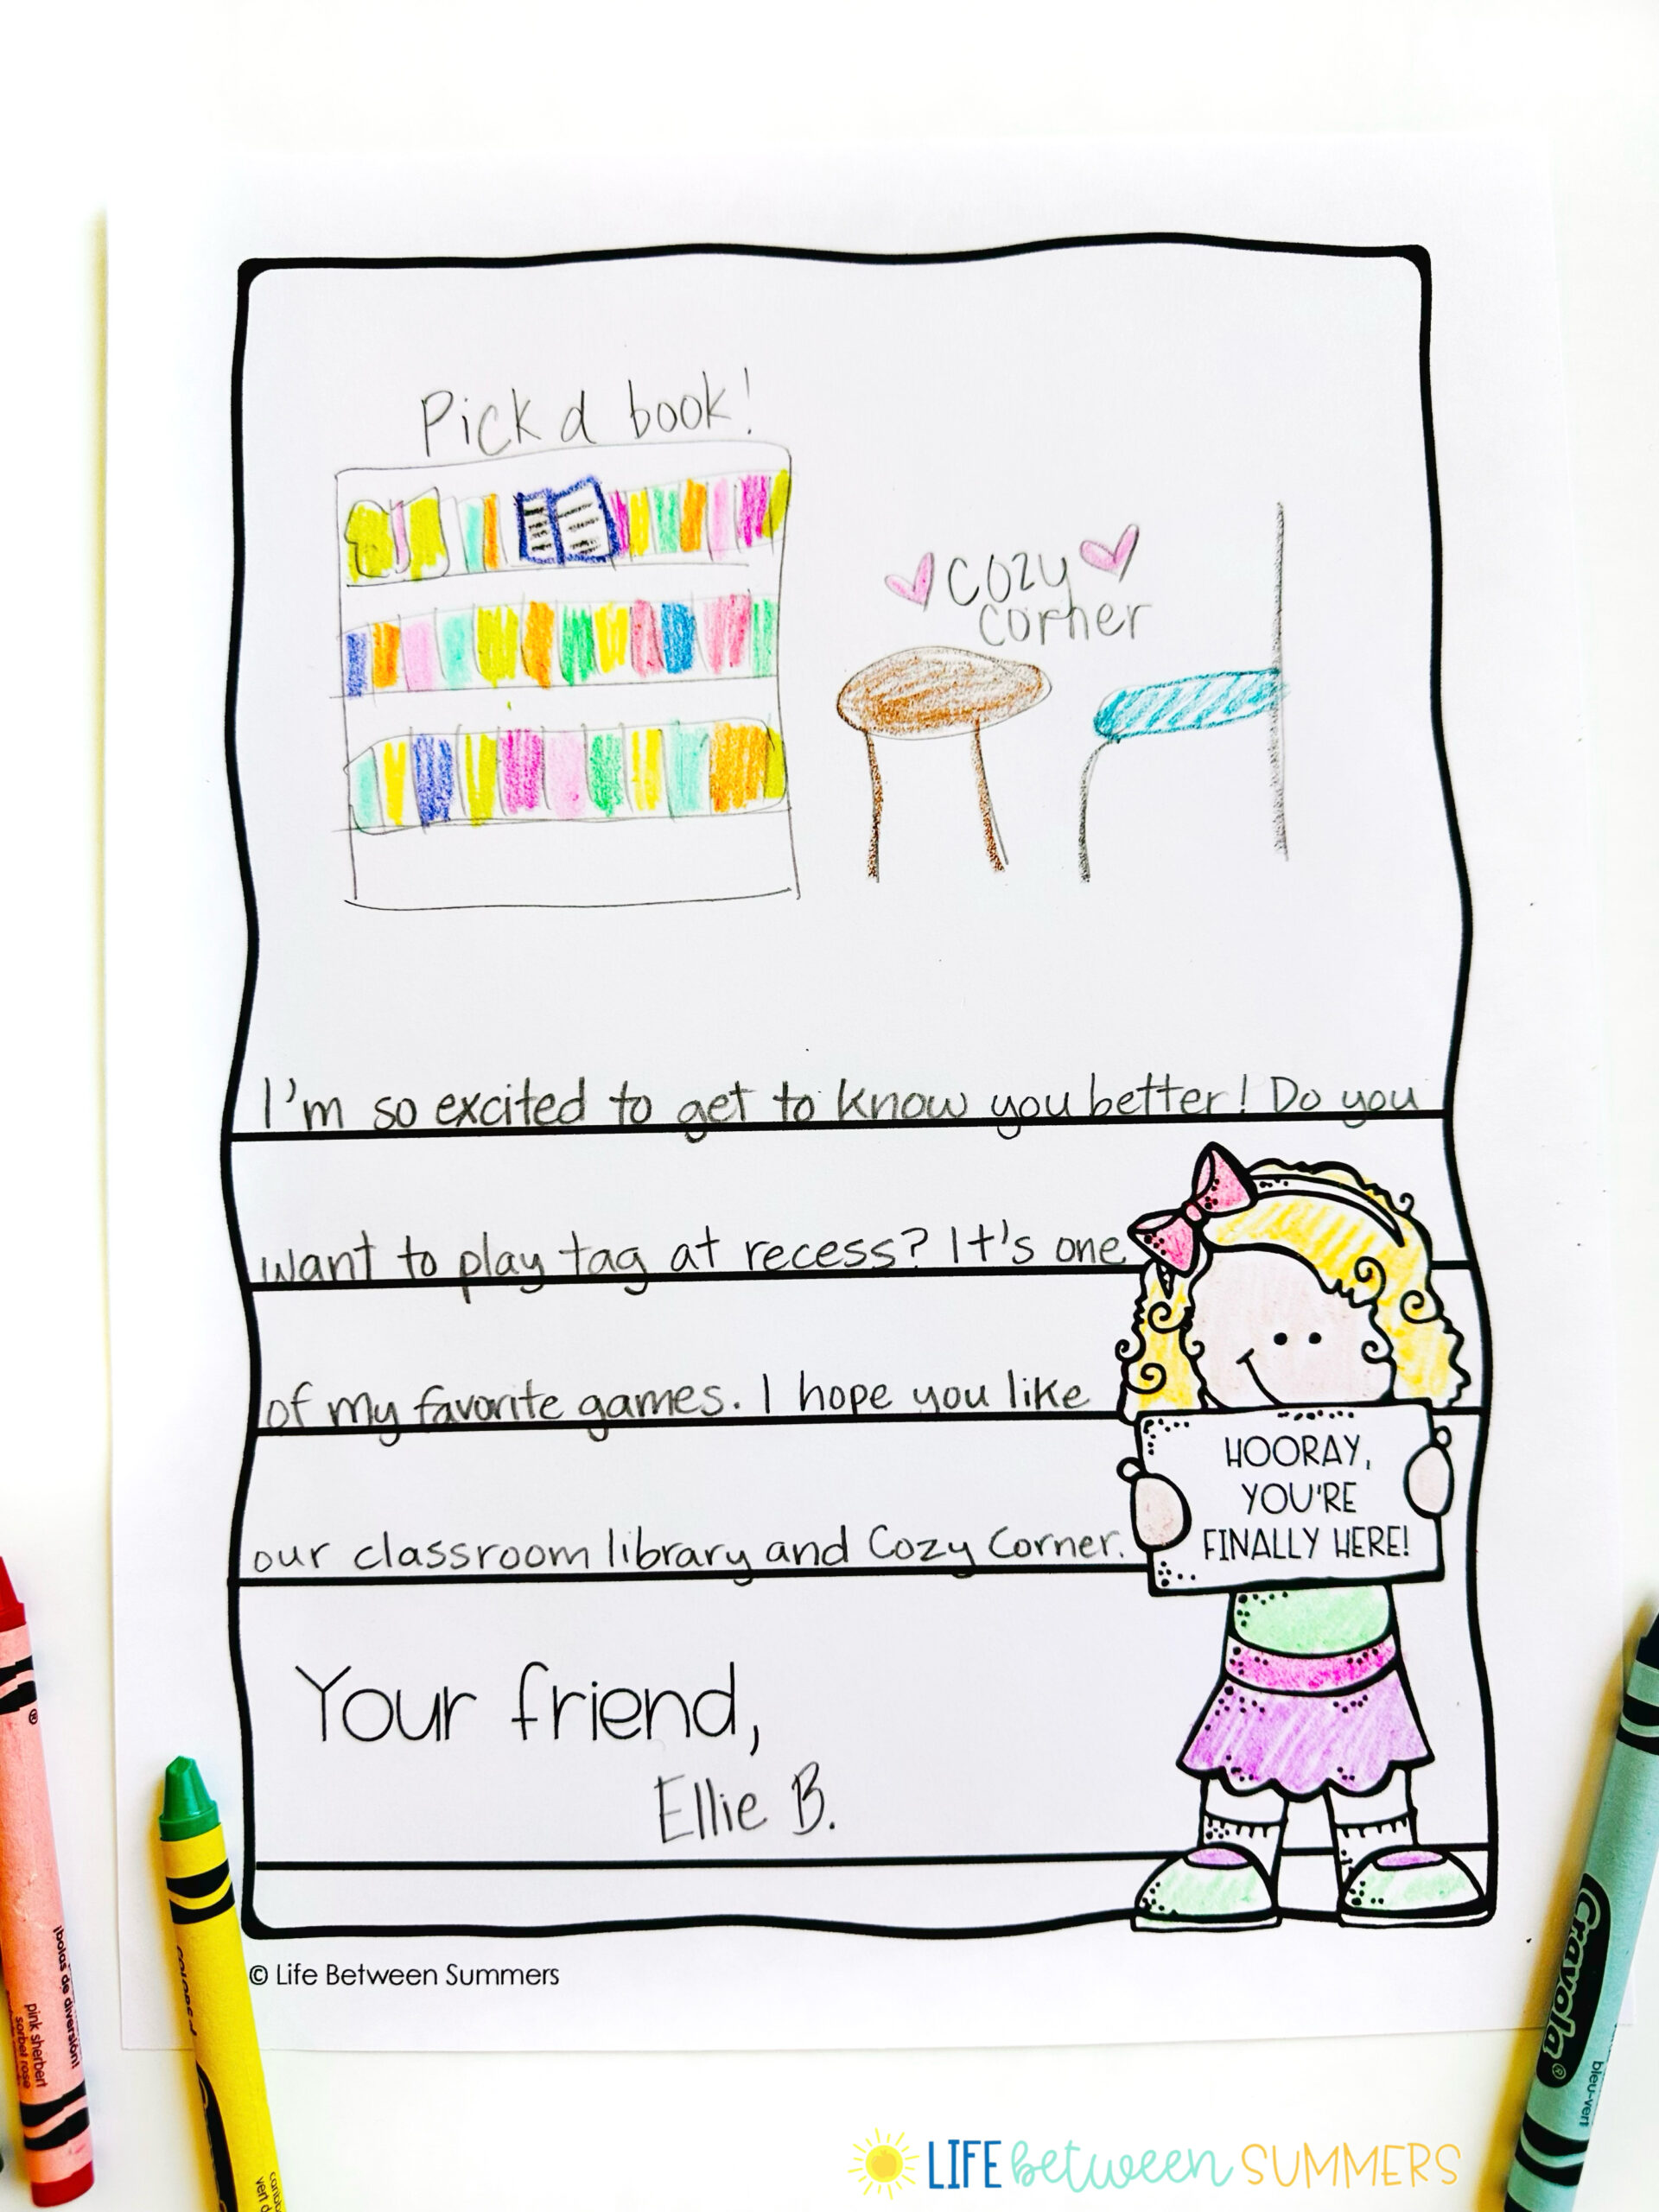 Pick a book!
Cozy
corner
I'm so excited to get to know you better! Do you
want to play tag at recess? It's one
of my favorite games. I hope you like
our classroom library and Cozy Corner.
HOORAY,
YOU'RE
FINALLY HERE!
Your friend,
Ellie B.
© Life Between Summers
¡bolas de diversión!
pink sherbert
sorbet rose
Crayola®
bleu-vert
LIFE between SUMMERS